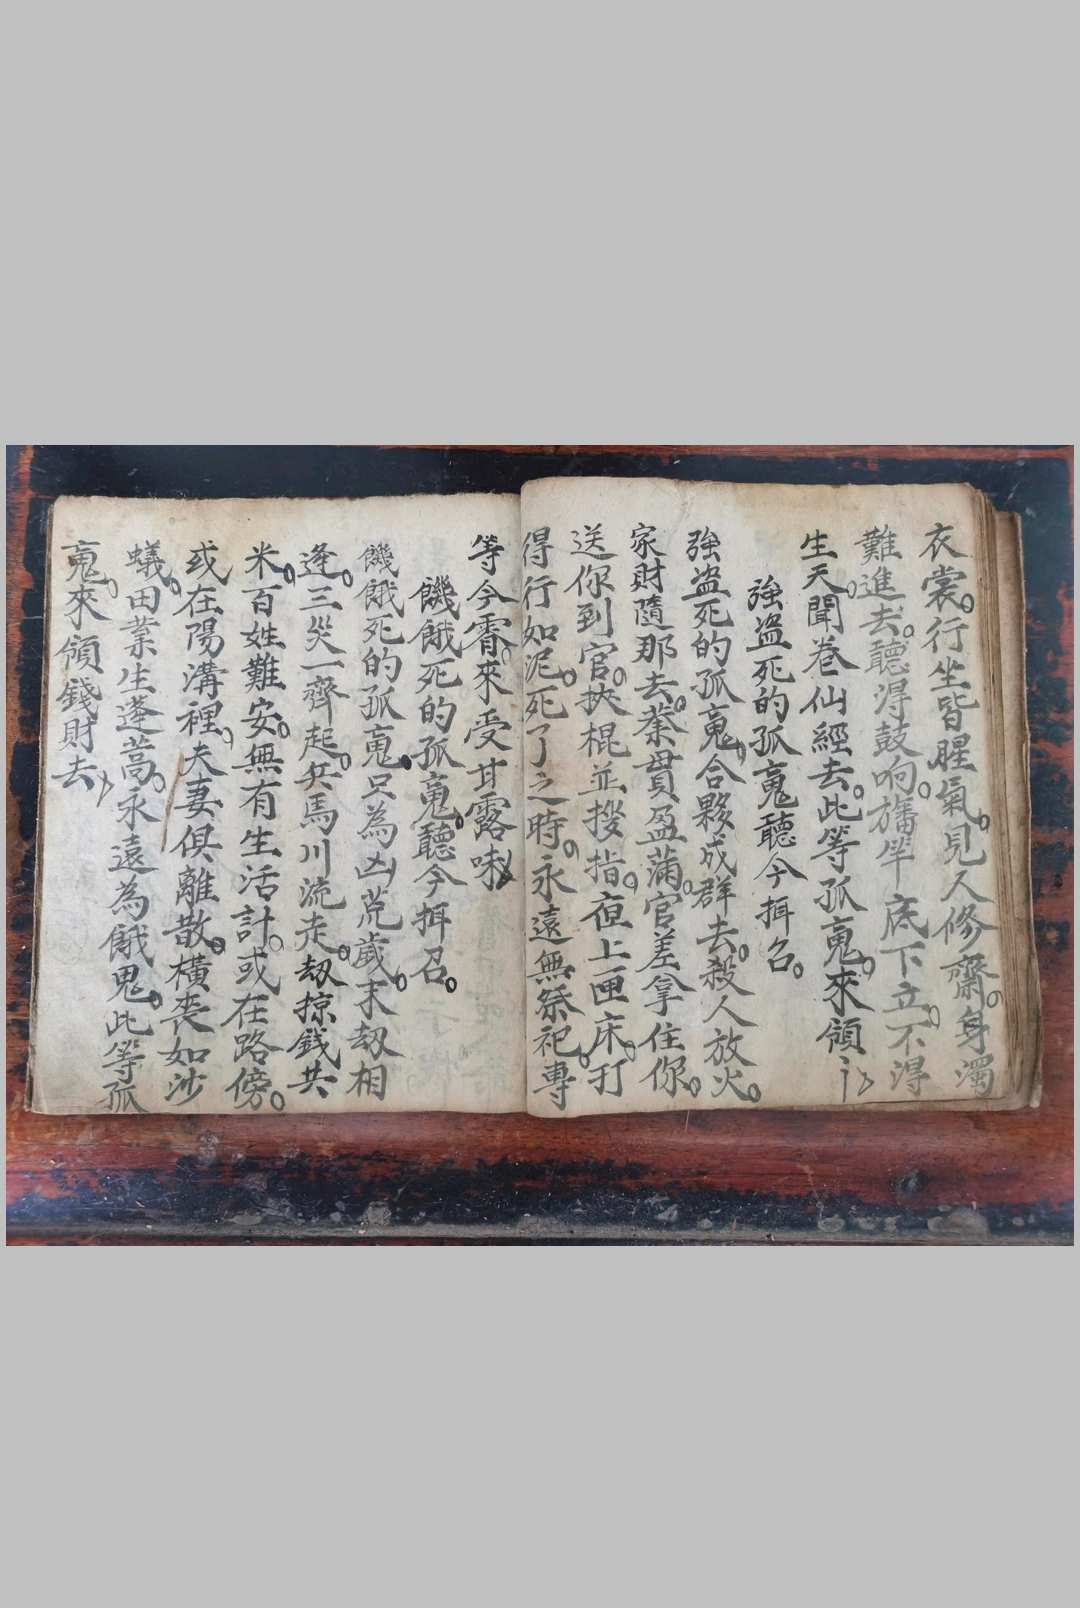 衣裳。行坐皆腥氣。見人修齋。身濁
難進去。聽得鼓响。旛竿底下立。不得
生天。聞卷仙經去。此等孤䰟。來領
強盗死的孤䰟聽今揖召。
強盗死的孤䰟。合夥成群去。殺人放火。
家財隨那去。業貫盈滿。官差拿住你。
送你到官。挾棍並搜指。夜上匣床。打
得行如泥。死了之時。永遠無祭祀。專
等今霄。來受甘露味
饑餓死的孤䰟。聽今揖召。
饑餓死的孤䰟。只為凶荒歲。末刼相
逢。三災一齊起。兵馬川流走。刼掠錢共
米。百姓難安。無有生活計。或在路傍。
或在陽溝裡。夫妻俱離散。橫喪如沙
蟻。田業生蓬蒿。永遠為餓鬼。此等孤
䰟。來領錢財去